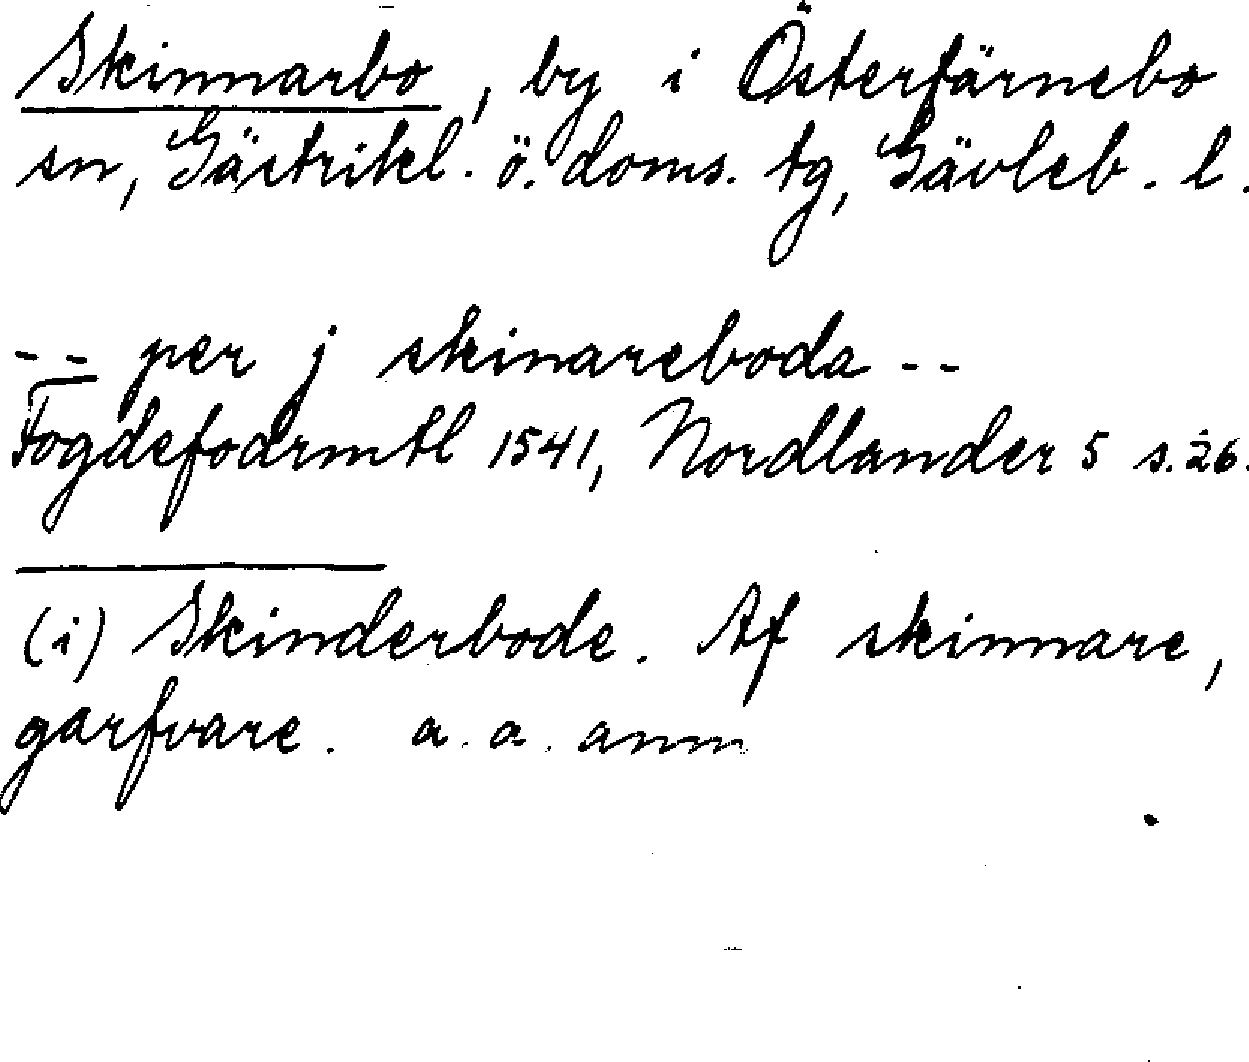 Skinnarbo, by i Österfärnebo
sn, Gästrikl. ö. doms. tg, Gävleb. l.
-- per j skinareboda --
Fogdefodrmtl 1541, Nordlander 5 s. 26.
(i) Skinderbode. Af skinnare,
garfvare. a. a. anm